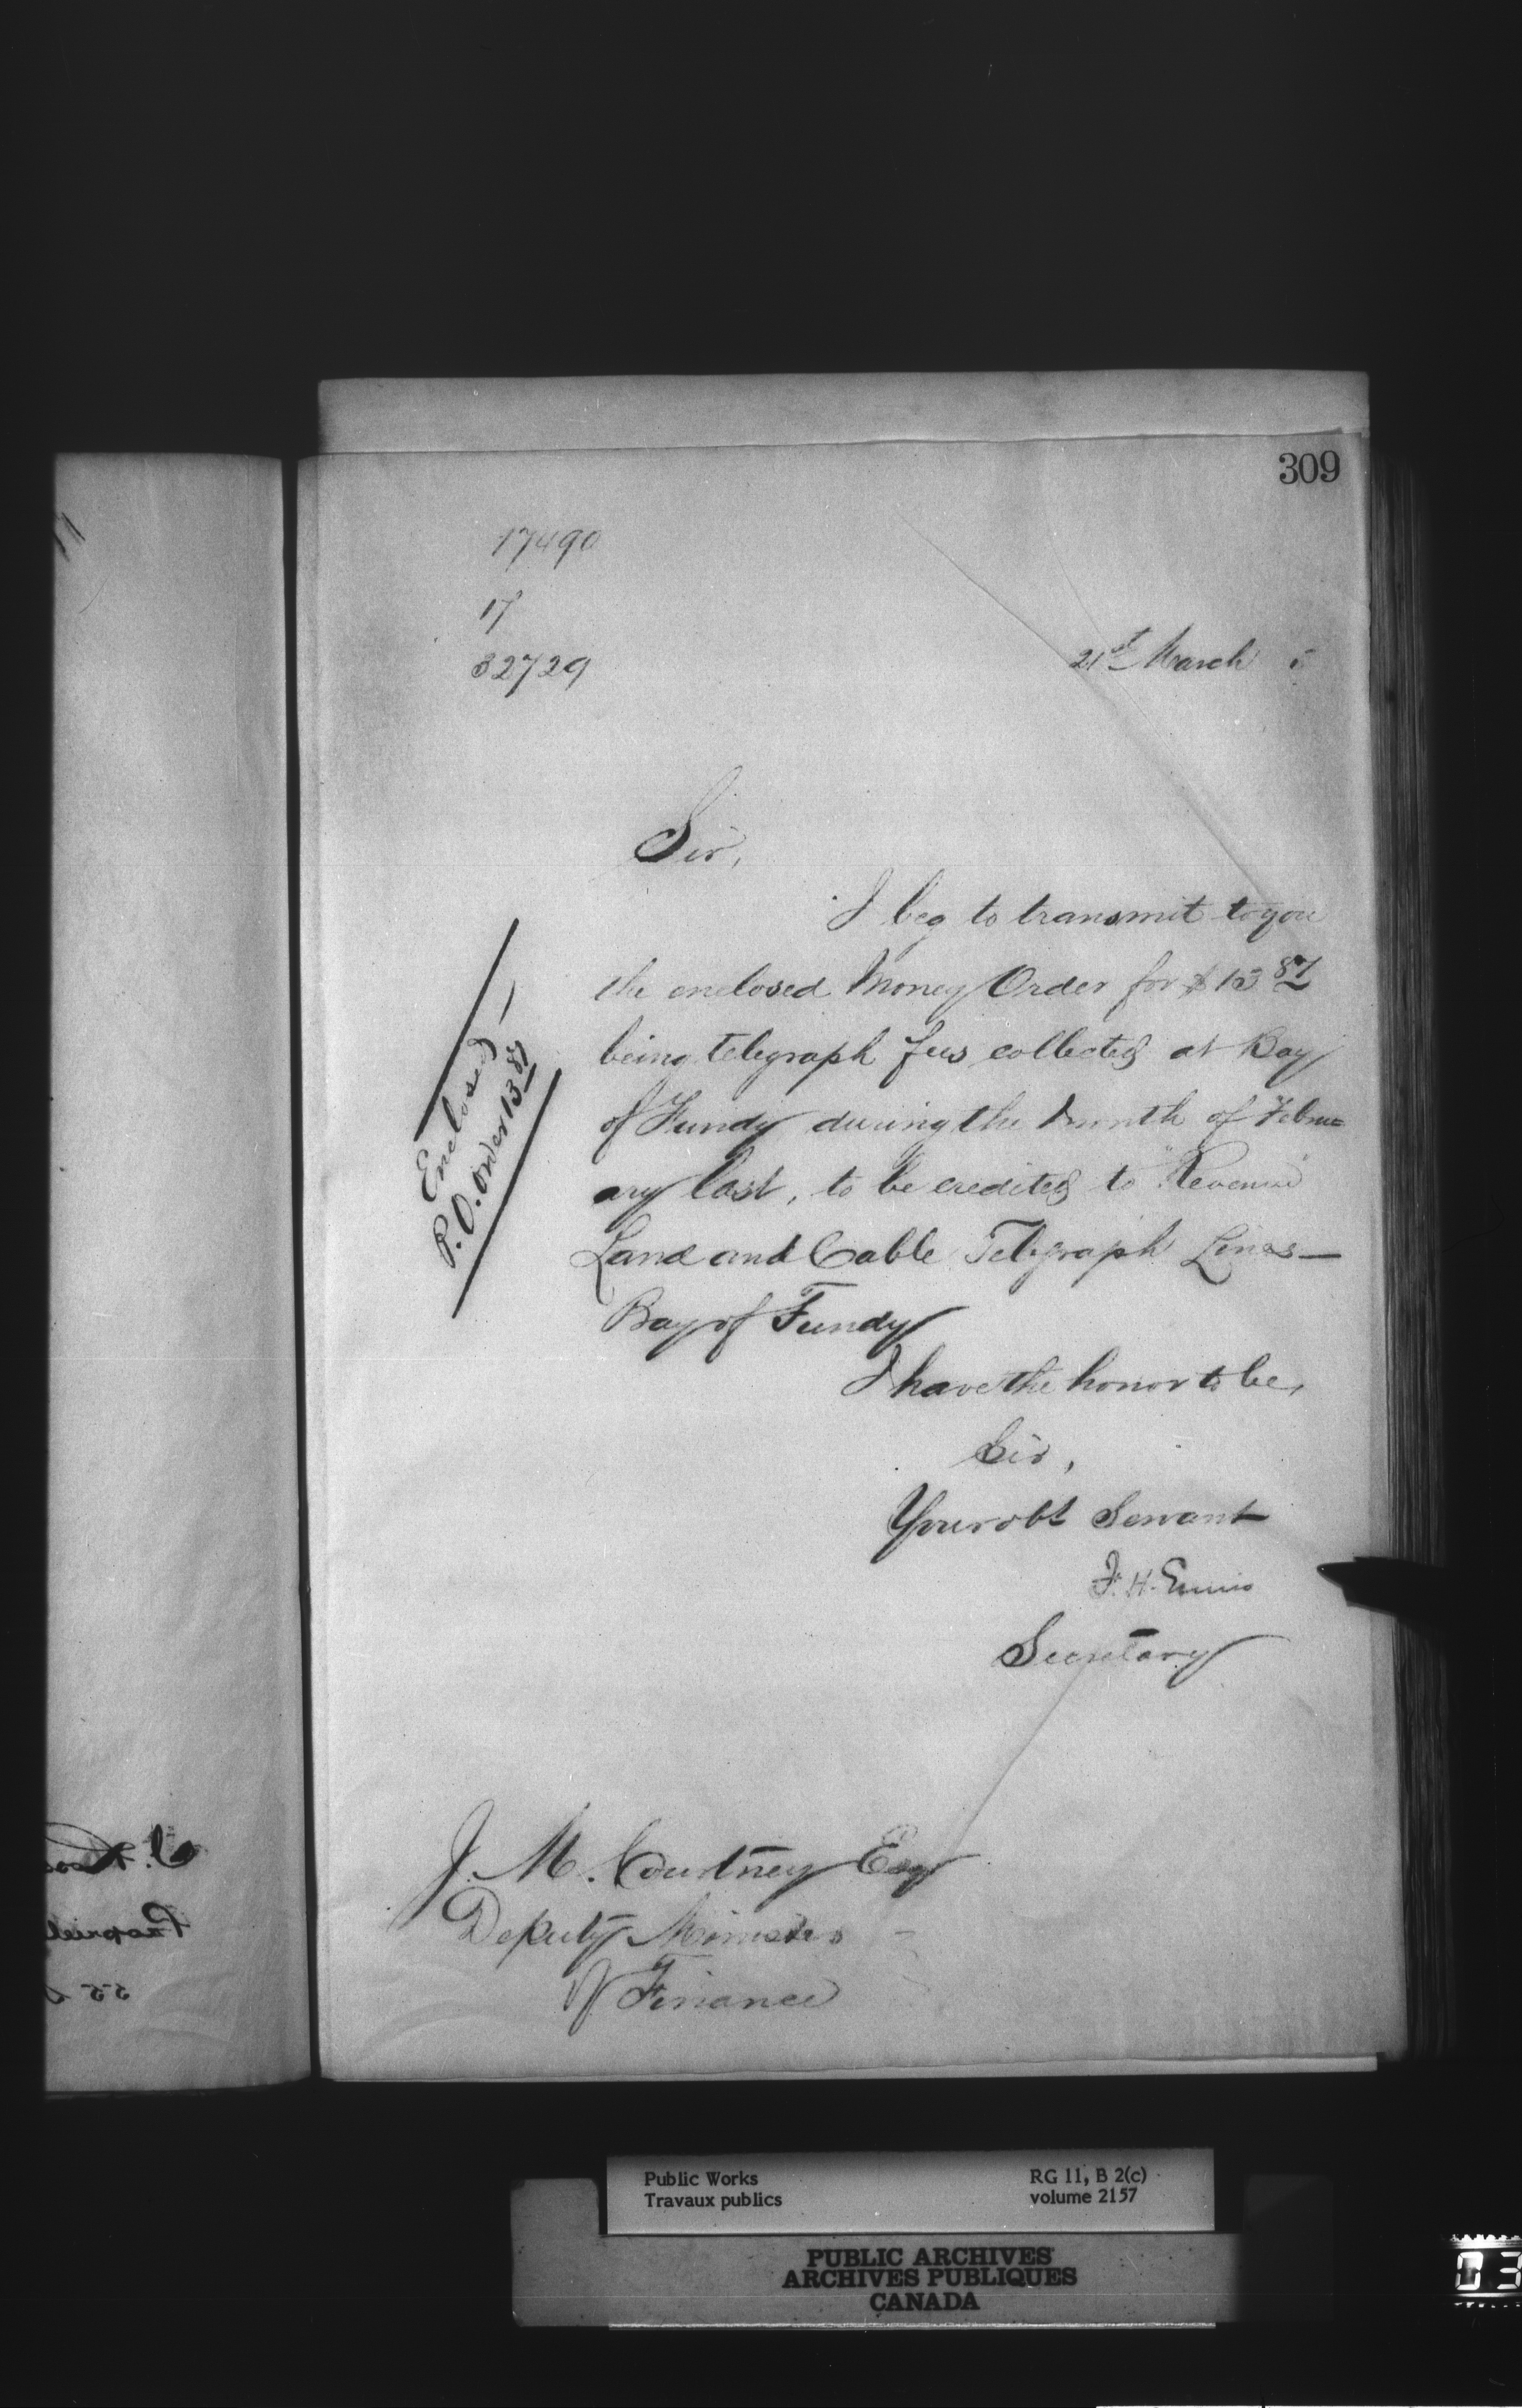 309
17490
17
32729
21st March 5
Sir,
I beg to transmit to you
the enclosed Money Order for $13 87
being telegraph fees collected at Bay
of Fundy during the month of Febru=
ary last, to be credited to "Revenue"
Land and Cable Telegraph Lines—
Bay of Fundy
I have the honor to be,
Sir,
Your obt Servant
F. H. Ennis
Secretary
Enclosed —
P.O. order 13 87
J. M. Courtney Esqr
Deputy Minister
of Finance
Public Works
Travaux publics
RG 11, B 2(c)
volume 2157
PUBLIC ARCHIVES
ARCHIVES PUBLIQUES
CANADA
03